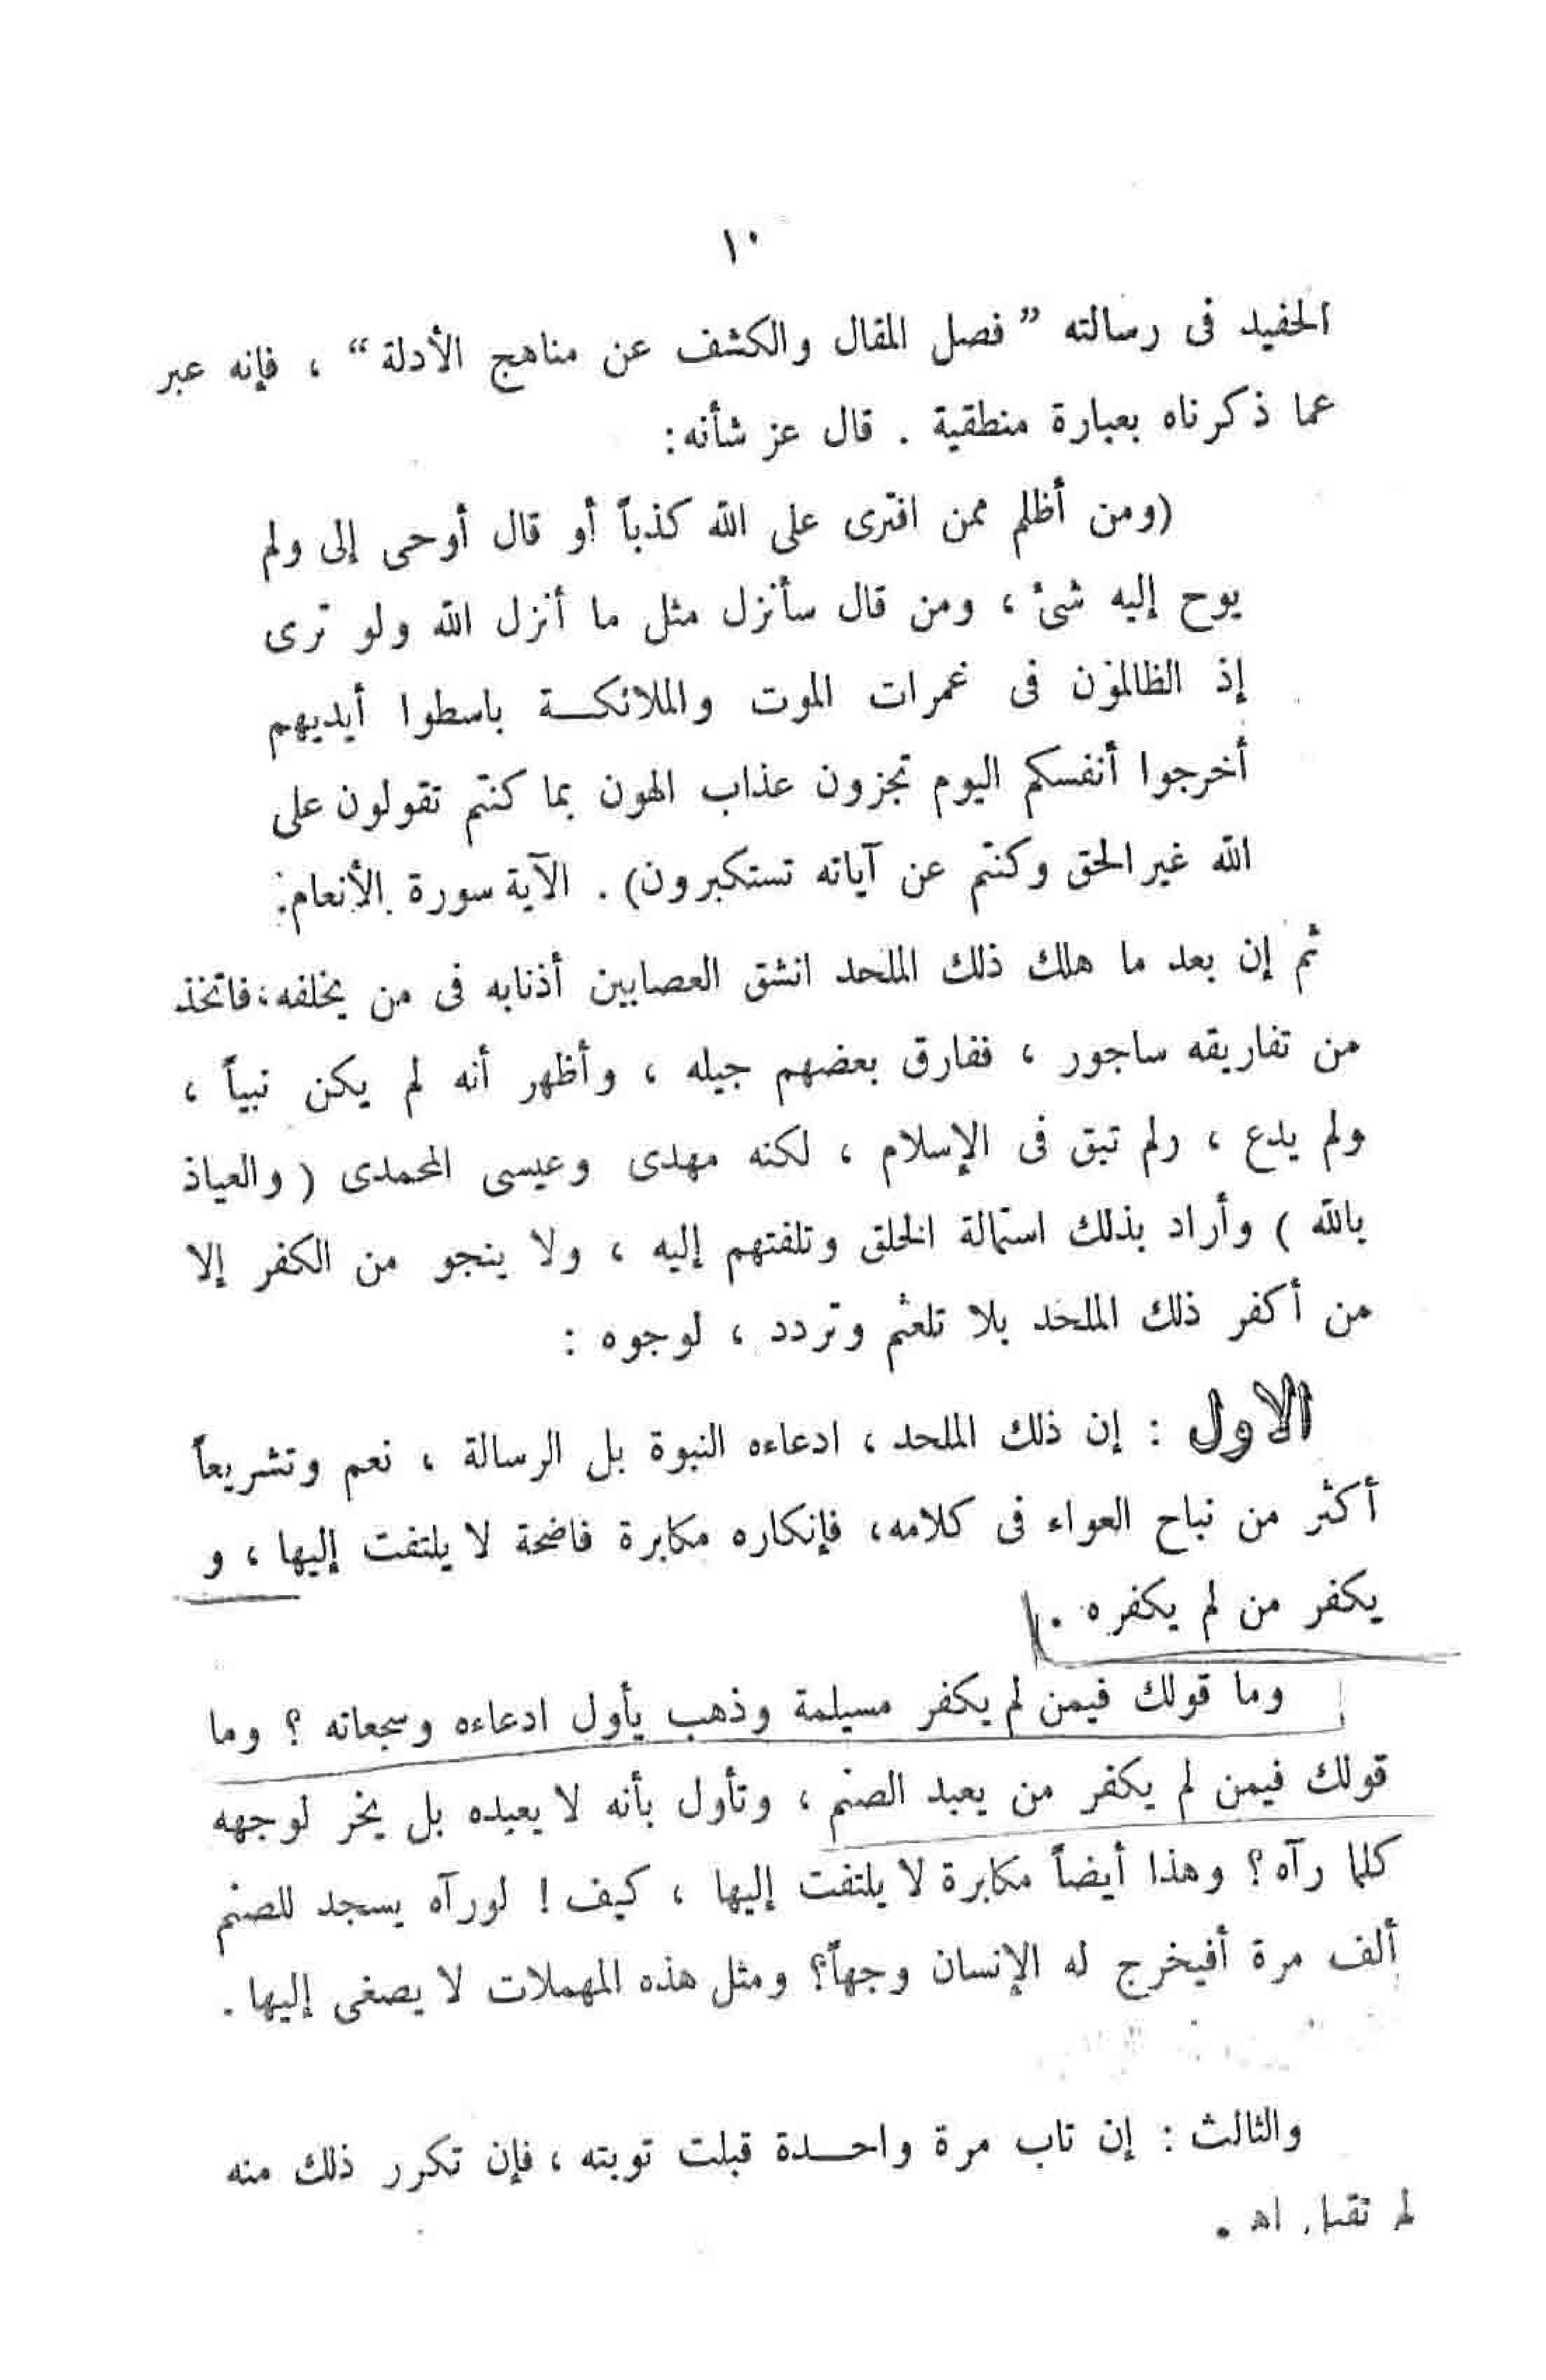 ١٠
الحفيد فى رسالته ” فصل المقال والكشف عن مناهج الأدلة “ ، فإنه عبر
عما ذكرناه بعبارة منطقية . قال عز شأنه:
(ومن أظلم ممن افترى على الله كذباً أو قال أوحى إلى ولم
يوح إليه شئ ، ومن قال سأنزل مثل ما أنزل الله ولو ترى
إذ الظالمون فى غمرات الموت والملائكــة باسطوا أيديهم
أخرجوا أنفسكم اليوم تجزون عذاب الهون بما كنتم تقولون على
الله غير الحق وكنتم عن آياته تستكبرون) . الآية سورة الأنعام.
ثم إن بعد ما هلك ذلك الملحد انشق العصابين أذنابه فى من يخلفه، فاتخذ
من تفاريقه ساجور ، ففارق بعضهم جيله ، وأظهر أنه لم يكن نبياً ،
ولم يدع ، ولم تبق فى الإسلام ، لكنه مهدى وعيسى المحمدى ( والعياذ
بالله ) وأراد بذلك استمالة الخلق وتلفتهم إليه ، ولا ينجو من الكفر إلا
من أكفر ذلك الملحد بلا تلعثم وتردد ، لوجوه :
الاول : إن ذلك الملحد ، ادعاءه النبوة بل الرسالة ، نعم وتشريعاً
أكثر من نباح العواء فى كلامه، فإنكاره مكابرة فاضحة لا يلتفت إليها ، و
يكفر من لم يكفره .
وما قولك فيمن لم يكفر مسيلمة وذهب يأول ادعاءه وسجعاته ؟ وما
قولك فيمن لم يكفر من يعبد الصنم ، وتأول بأنه لا يعبده بل يخر لوجهه
كلما رآه ؟ وهذا أيضاً مكابرة لا يلتفت إليها ، كيف ! لو رآه يسجد للصنم
ألف مرة أفيخرج له الإنسان وجهاً؟ ومثل هذه المهملات لا يصغى إليها .
والثالث : إن تاب مرة واحــدة قبلت توبته ، فإن تكرر ذلك منه
لم تقبل اه .